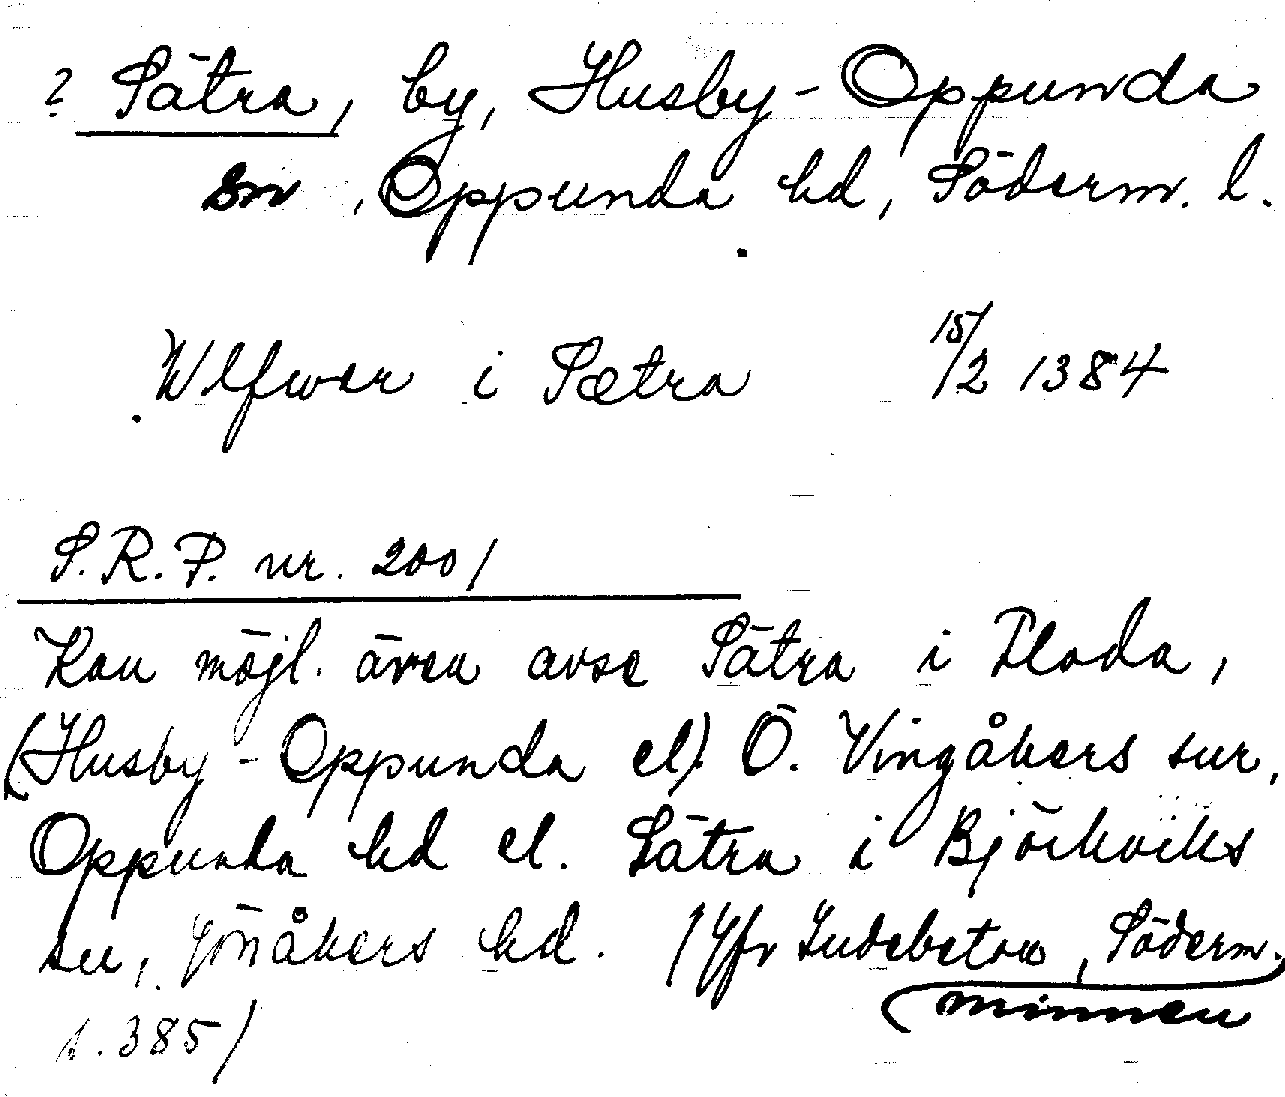 ? Sätra, by, Husby-Oppunda
sn, Oppunda hd, Söderm. l.
Wlfwer i Sætra 15/2 1384
S.R.P. nr. 2001
Kan möjl. även avse Sätra i Floda,
(Husby-Oppunda el.) Ö. Vingåkers snr,
Oppunda hd el. Sätra i Björkviks
sn, Jönåkers hd. /Jfr Ludebeton, Söderm.
minnen
s. 385/